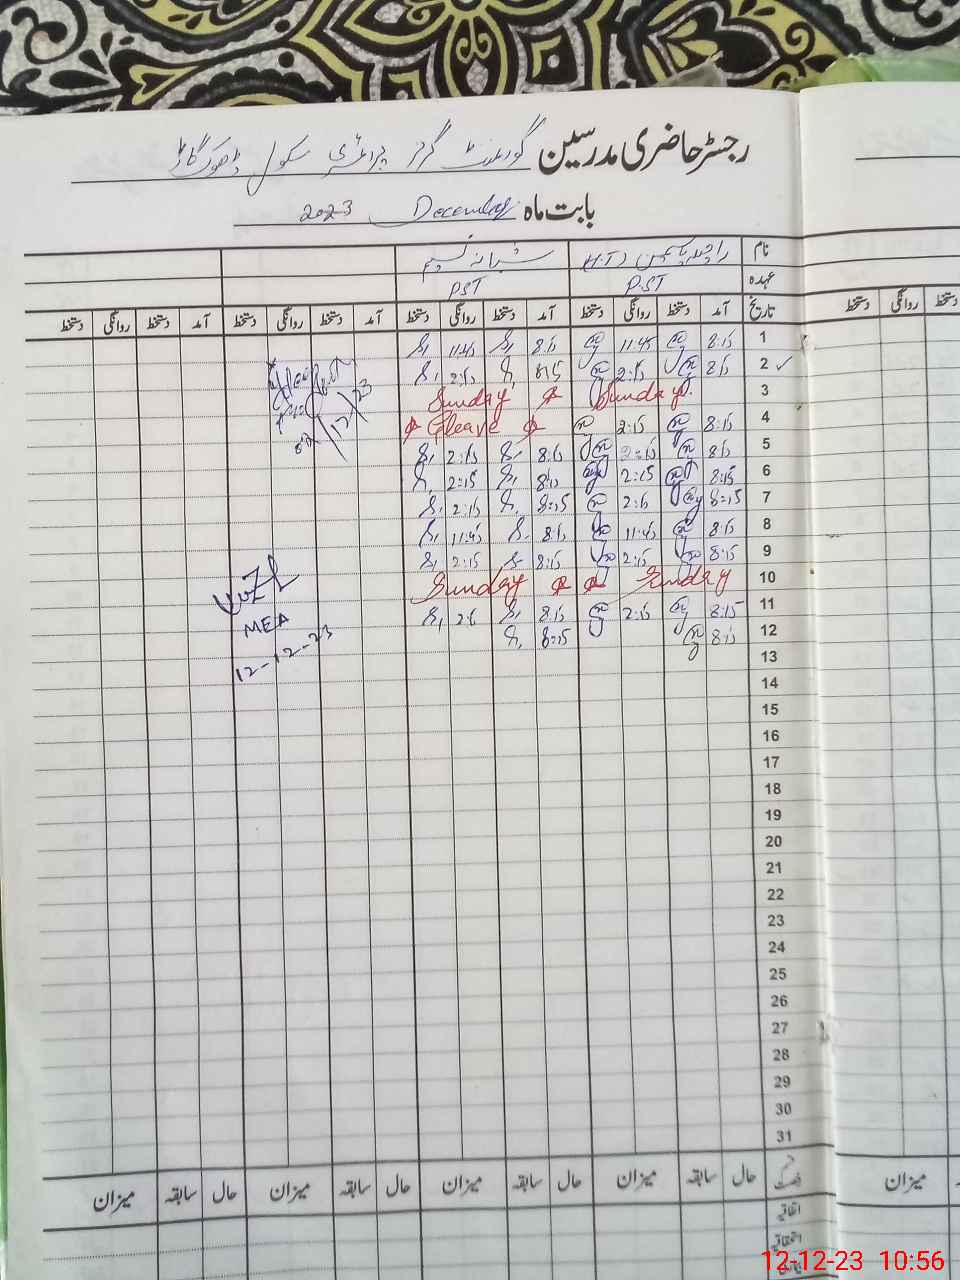 رجسٹر حاضری مدرسین گورنمنٹ گرلز پرائمری سکول
بابت ماہ December 2023
نام
شبانہ نسیم
عہدہ PST PST
تاریخ آمد دستخط روانگی دستخط آمد دستخط روانگی دستخط آمد دستخط روانگی دستخط آمد دستخط روانگی دستخط
1 8:15 11:45 8:15 11:45
2 8:15 2:15 8:15 2:15
3 Sunday Sunday
4 8:15 2:15 Cleave
5 8:15 2:15 8:15 2:15
6 8:15 2:15 8:15 2:15
7 8:15 2:15 8:15 2:15
8 8:15 11:45 8:15 11:45
9 8:15 2:15 8:15 2:15
10 Sunday Sunday
11 8:15 2:15 8:15
12 8:15 8:15
MEA
12-12-23
13
14
15
16
17
18
19
20
21
22
23
24
25
26
27
28
29
30
31
حال سابقہ میزان حال سابقہ میزان حال سابقہ میزان حال سابقہ میزان
اتفاقیہ
استحقاقیہ
دستخط روانگی دستخط
میزان
12-12-23 10:56